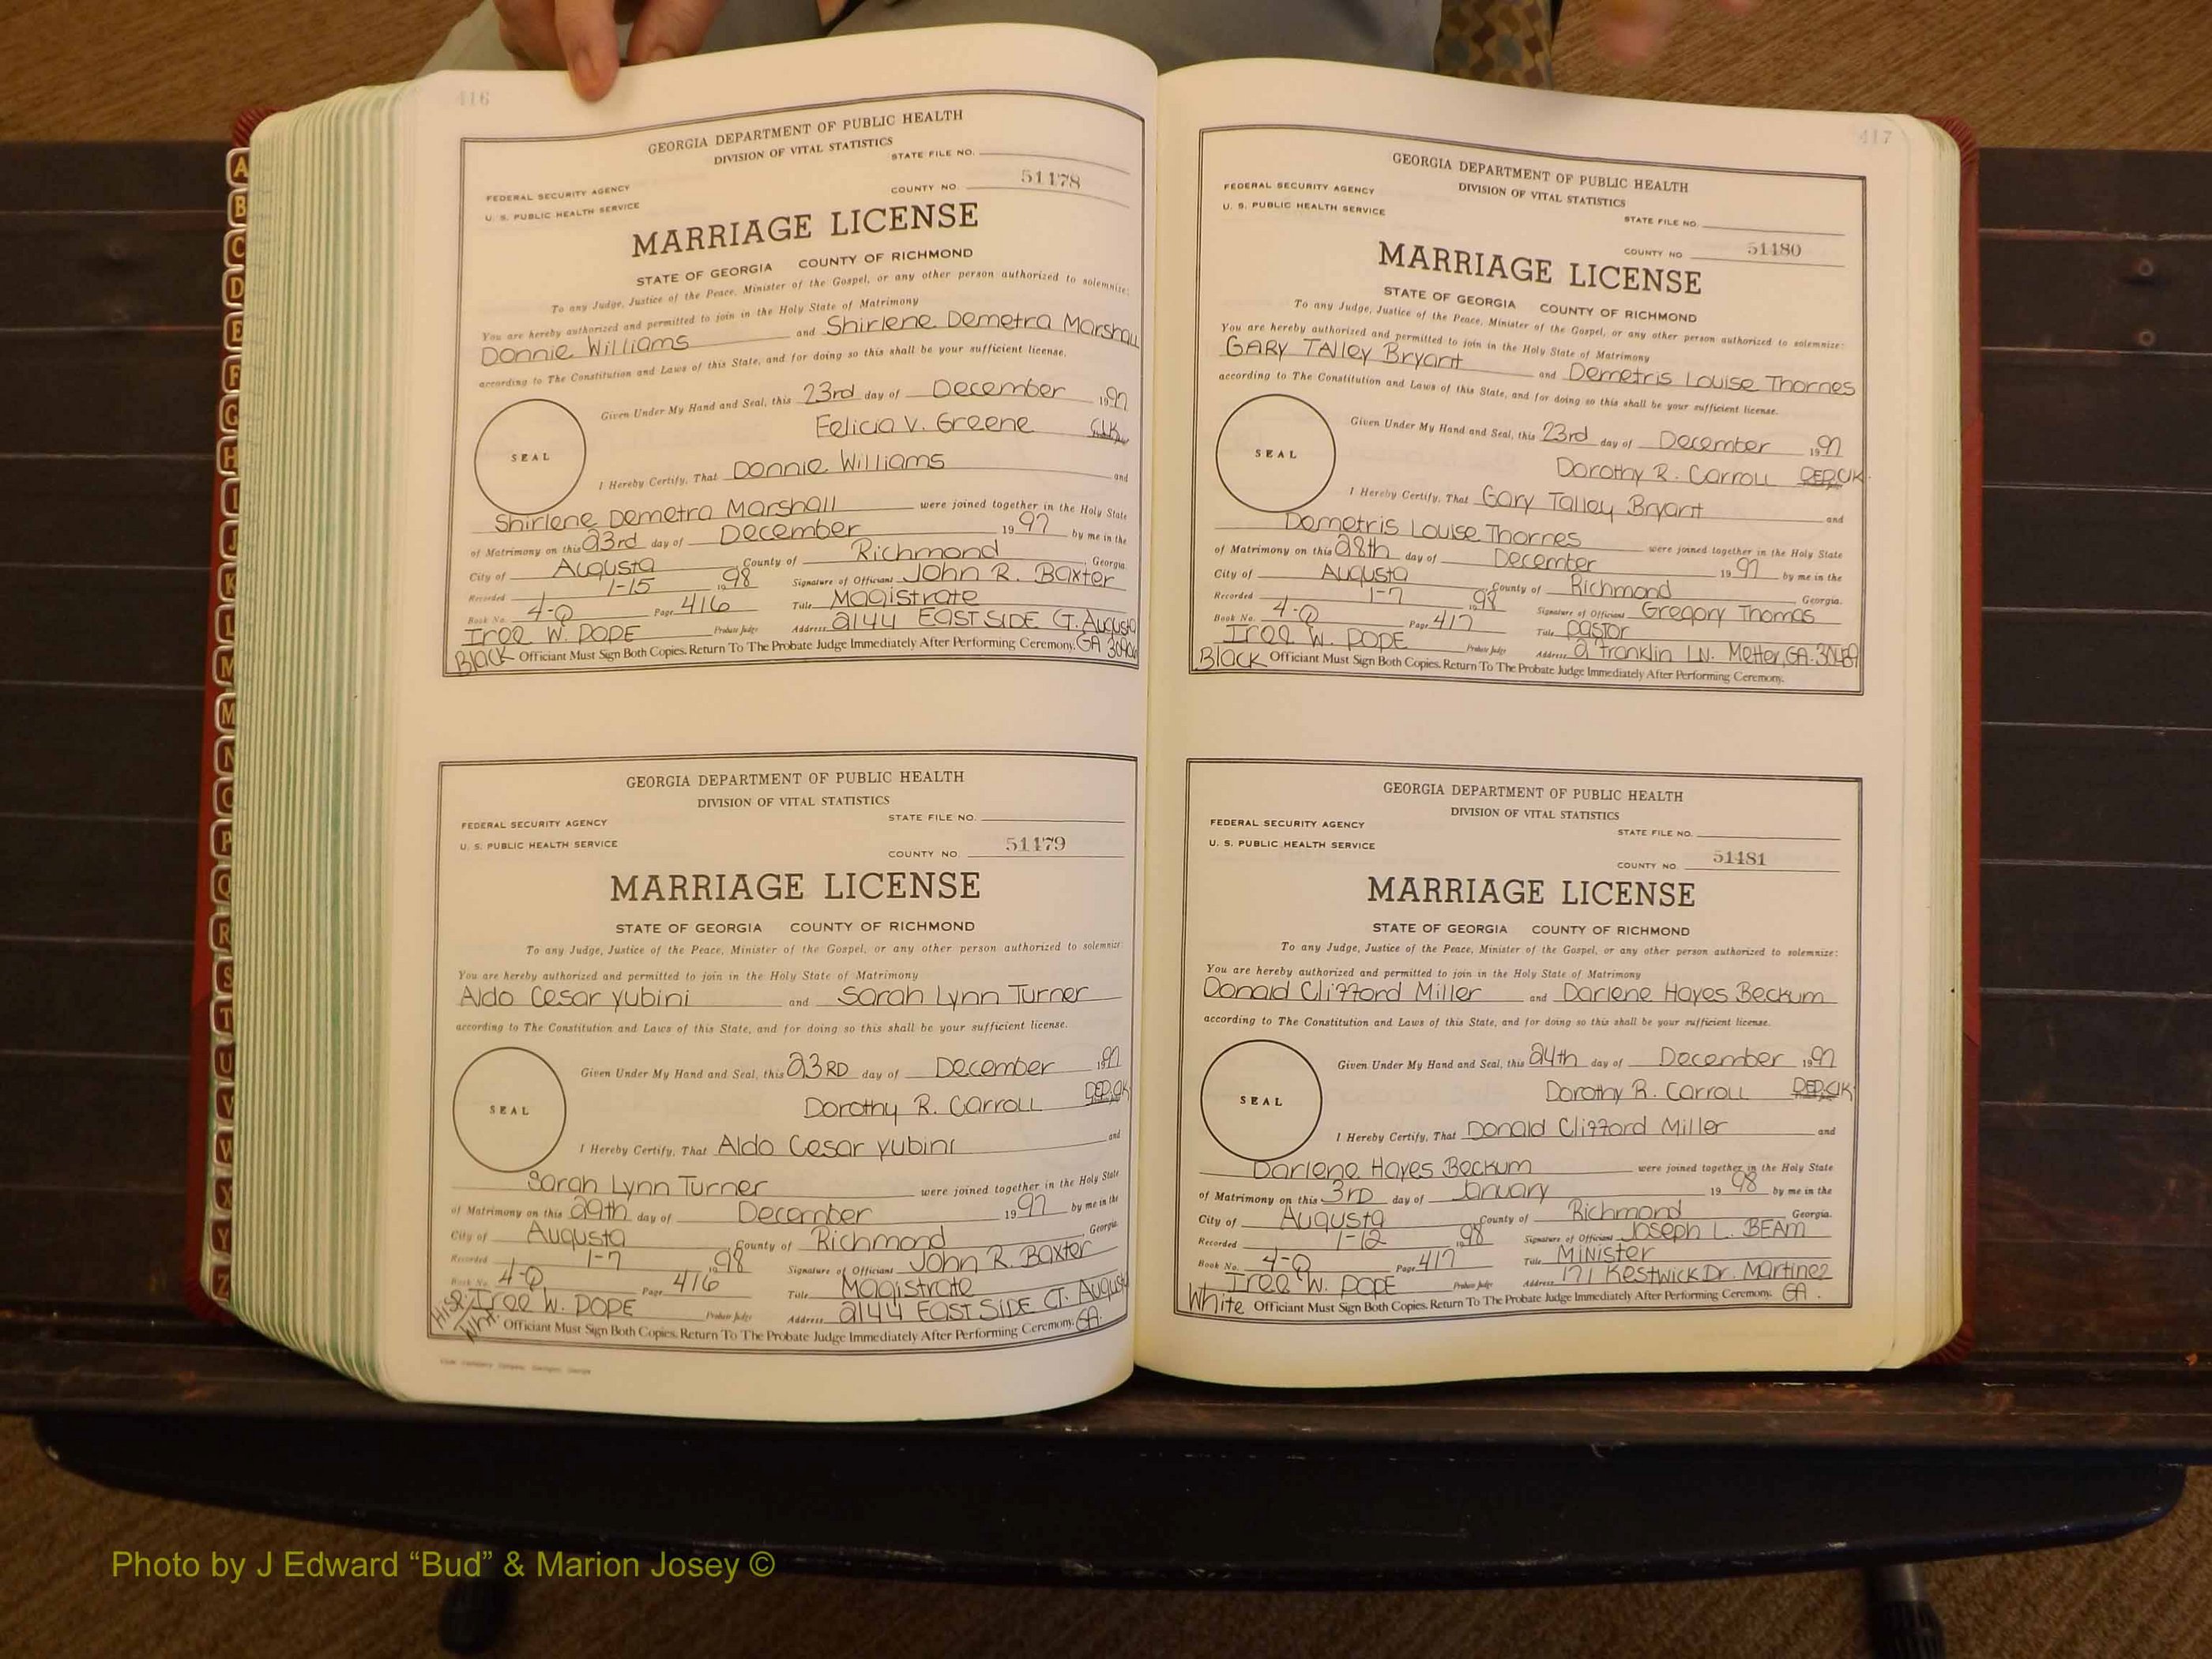 416
GEORGIA DEPARTMENT OF PUBLIC HEALTH
DIVISION OF VITAL STATISTICS
STATE FILE NO.
FEDERAL SECURITY AGENCY
U. S. PUBLIC HEALTH SERVICE
COUNTY NO. 51178
MARRIAGE LICENSE
STATE OF GEORGIA COUNTY OF RICHMOND
To any Judge, Justice of the Peace, Minister of the Gospel, or any other person authorized to solemnize:
You are hereby authorized and permitted to join in the Holy State of Matrimony
Donnie Williams and Shirlene Demetra Marshall
according to The Constitution and Laws of this State, and for doing so this shall be your sufficient license.
Given Under My Hand and Seal, this 23rd day of December 1997
Felicia V. Greene Clk.
SEAL
I Hereby Certify, That Donnie Williams and
Shirlene Demetra Marshall were joined together in the Holy State
of Matrimony on this 23rd day of December 1997 by me in the
City of Augusta County of Richmond Georgia.
Recorded 1-15 1998 Signature of Officiant John R. Baxter
Book No. 4-Q Page 416 Title Magistrate
Iree W. POPE Probate Judge Address 2144 EAST SIDE CT. Augusta
Black Officiant Must Sign Both Copies. Return To The Probate Judge Immediately After Performing Ceremony. GA
GEORGIA DEPARTMENT OF PUBLIC HEALTH
DIVISION OF VITAL STATISTICS
STATE FILE NO.
FEDERAL SECURITY AGENCY
U. S. PUBLIC HEALTH SERVICE
COUNTY NO. 51179
MARRIAGE LICENSE
STATE OF GEORGIA COUNTY OF RICHMOND
To any Judge, Justice of the Peace, Minister of the Gospel, or any other person authorized to solemnize:
You are hereby authorized and permitted to join in the Holy State of Matrimony
Aldo Cesar Yubini and Sarah Lynn Turner
according to The Constitution and Laws of this State, and for doing so this shall be your sufficient license.
Given Under My Hand and Seal, this 23RD day of December 1997
Dorothy R. Carroll DEP.CLK
SEAL
I Hereby Certify, That Aldo Cesar Yubini and
Sarah Lynn Turner were joined together in the Holy State
of Matrimony on this 29th day of December 1997 by me in the
City of Augusta County of Richmond Georgia.
Recorded 1-7 1998 Signature of Officiant John R. Baxter
Book No. 4-Q Page 416 Title Magistrate
Iree W. POPE Probate Judge Address 2144 EAST SIDE CT. Augusta
Officiant Must Sign Both Copies. Return To The Probate Judge Immediately After Performing Ceremony. GA.
417
GEORGIA DEPARTMENT OF PUBLIC HEALTH
DIVISION OF VITAL STATISTICS
FEDERAL SECURITY AGENCY
U. S. PUBLIC HEALTH SERVICE
STATE FILE NO.
COUNTY NO. 51180
MARRIAGE LICENSE
STATE OF GEORGIA COUNTY OF RICHMOND
To any Judge, Justice of the Peace, Minister of the Gospel, or any other person authorized to solemnize:
You are hereby authorized and permitted to join in the Holy State of Matrimony
GARY TALley Bryant and Demetris Louise Thornes
according to The Constitution and Laws of this State, and for doing so this shall be your sufficient license.
Given Under My Hand and Seal, this 23rd day of December 1997
Dorothy R. Carroll DEP.CLK.
SEAL
I Hereby Certify, That Gary Talley Bryant and
Demetris Louise Thornes were joined together in the Holy State
of Matrimony on this 28th day of December 1997 by me in the
City of Augusta County of Richmond Georgia.
Recorded 1-7 1998 Signature of Officiant Gregory Thomas
Book No. 4-Q Page 417 Title Pastor
Iree W. POPE Probate Judge Address 2 Franklin LN. Metter, GA.
Black Officiant Must Sign Both Copies. Return To The Probate Judge Immediately After Performing Ceremony.
GEORGIA DEPARTMENT OF PUBLIC HEALTH
DIVISION OF VITAL STATISTICS
FEDERAL SECURITY AGENCY
U. S. PUBLIC HEALTH SERVICE
STATE FILE NO.
COUNTY NO. 51181
MARRIAGE LICENSE
STATE OF GEORGIA COUNTY OF RICHMOND
To any Judge, Justice of the Peace, Minister of the Gospel, or any other person authorized to solemnize:
You are hereby authorized and permitted to join in the Holy State of Matrimony
Donald Clifford Miller and Darlene Hayes Beckum
according to The Constitution and Laws of this State, and for doing so this shall be your sufficient license.
Given Under My Hand and Seal, this 24th day of December 1997
Dorothy R. Carroll DEP.CLK
SEAL
I Hereby Certify, That Donald Clifford Miller and
Darlene Hayes Beckum were joined together in the Holy State
of Matrimony on this 3rd day of January 1998 by me in the
City of Augusta County of Richmond Georgia.
Recorded 1-12 1998 Signature of Officiant Joseph L. BEAM
Book No. 4-Q Page 417 Title Minister
Iree W. POPE Probate Judge Address 171 Kestwick Dr. Martinez
White Officiant Must Sign Both Copies. Return To The Probate Judge Immediately After Performing Ceremony. GA.
A
B
C
D
E
F
G
H
I
J
K
L
M
M
N
O
P
Q
R
S
T
U
V
W
X
Y
Z
Photo by J Edward “Bud” & Marion Josey ©